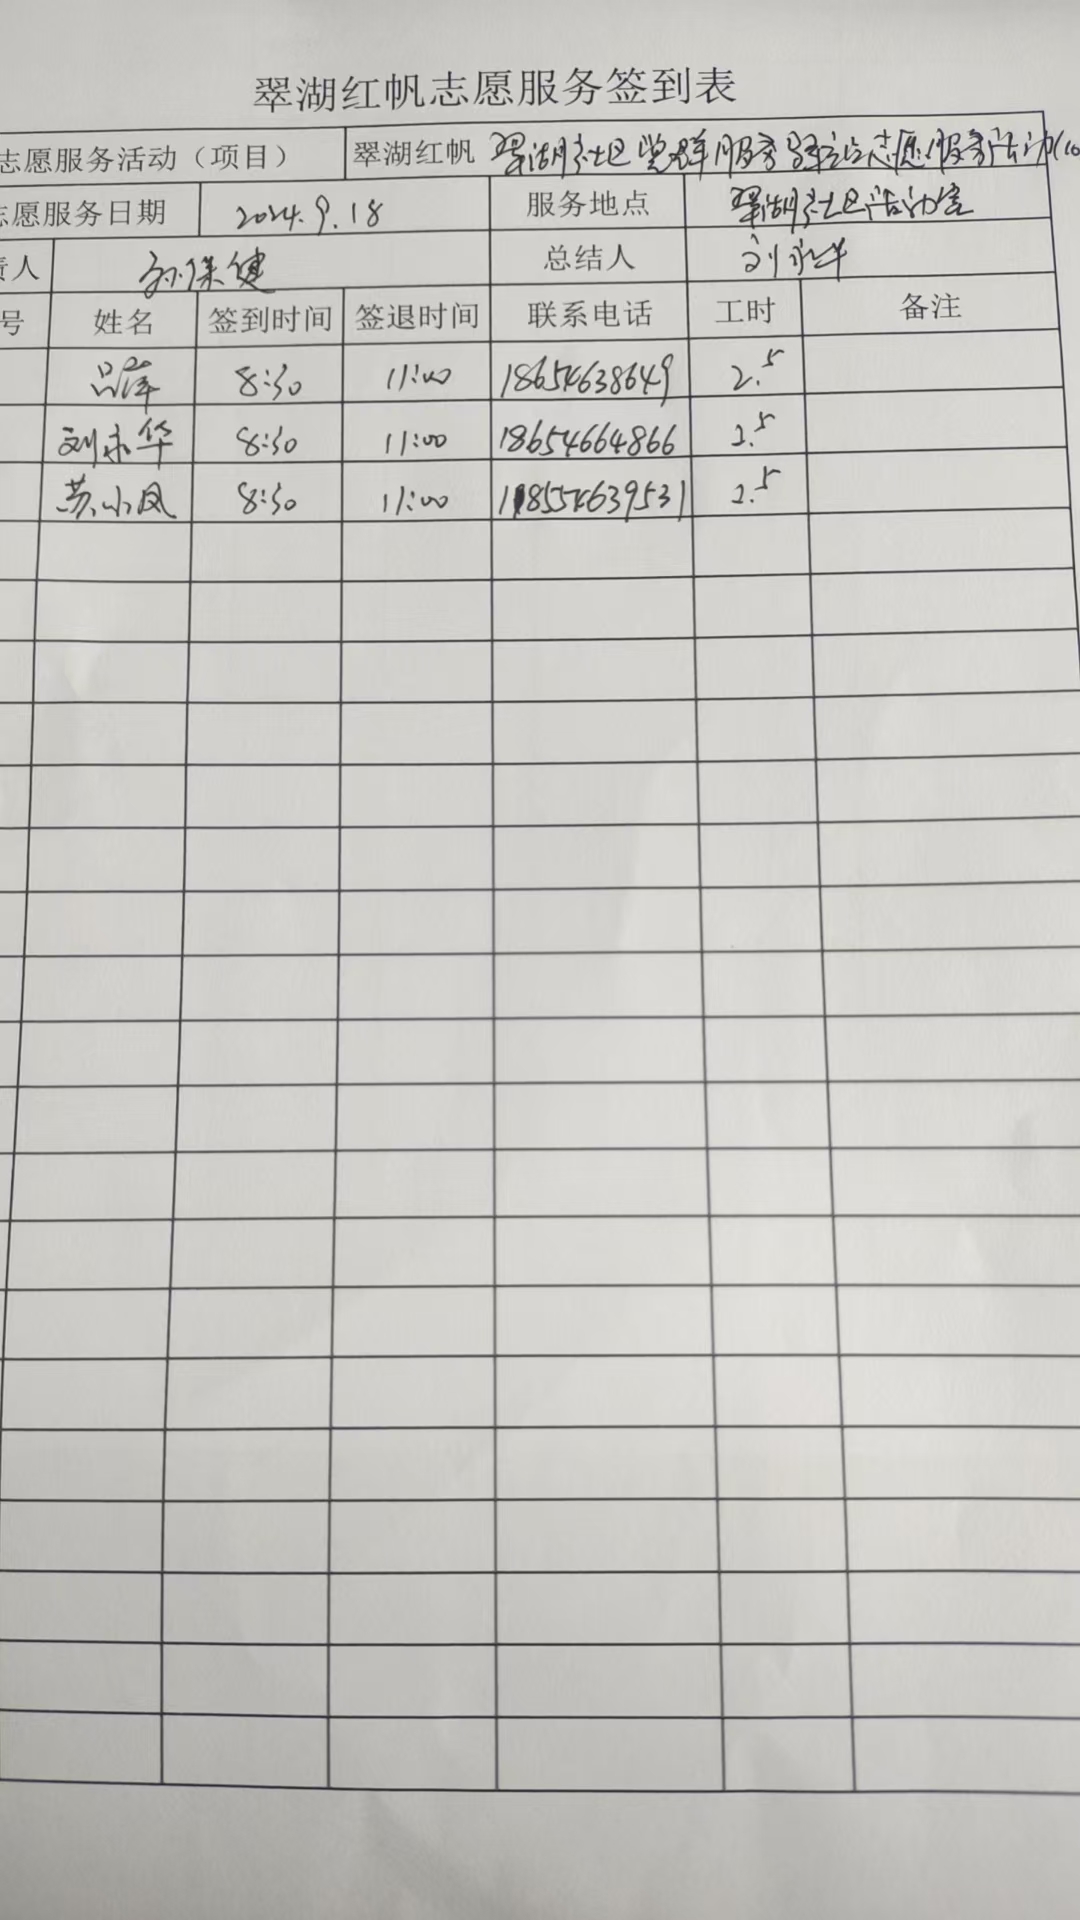 翠湖红帆志愿服务签到表
志愿服务活动（项目） 翠湖红帆 翠湖社区党群服务驿站志愿服务活动(10
志愿服务日期 2024.9.18 服务地点 翠湖社区活动室
责人 孙保健 总结人 刘永华
号 姓名 签到时间 签退时间 联系电话 工时 备注
吕萍 8:30 11:00 18654638649 2.5
刘永华 8:30 11:00 18654664866 2.5
苏小凤 8:30 11:00 18554639531 2.5